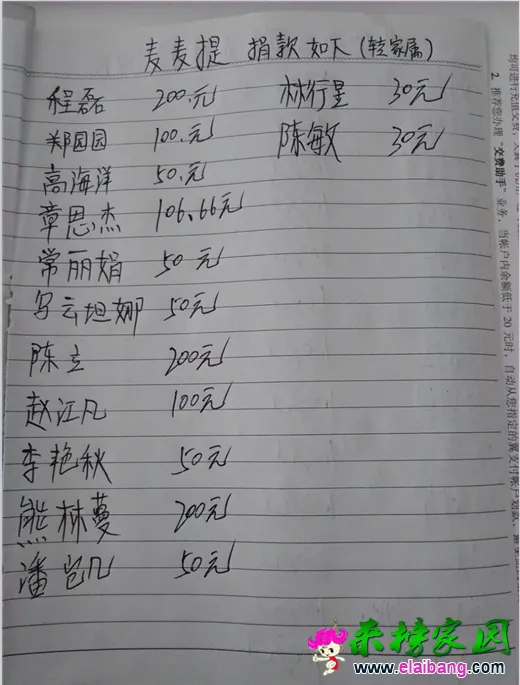 麦麦提 捐款如下(转家属)
程磊 200.元
郑园园 100.元
高海洋 50.元
章思杰 106.66元
常丽娟 50元
乌云坦娜 50元
陈立 200元
赵江凡 100元
李艳秋 50元
熊林蔓 200元
潘 50元
林行星 30元
陈敏 30元
2. 推荐您办理“交费助手”业务，当帐户内余额低于 20 元时，自动从您指定的翼支付帐户划款，
来榜家园
www.elaibang.com